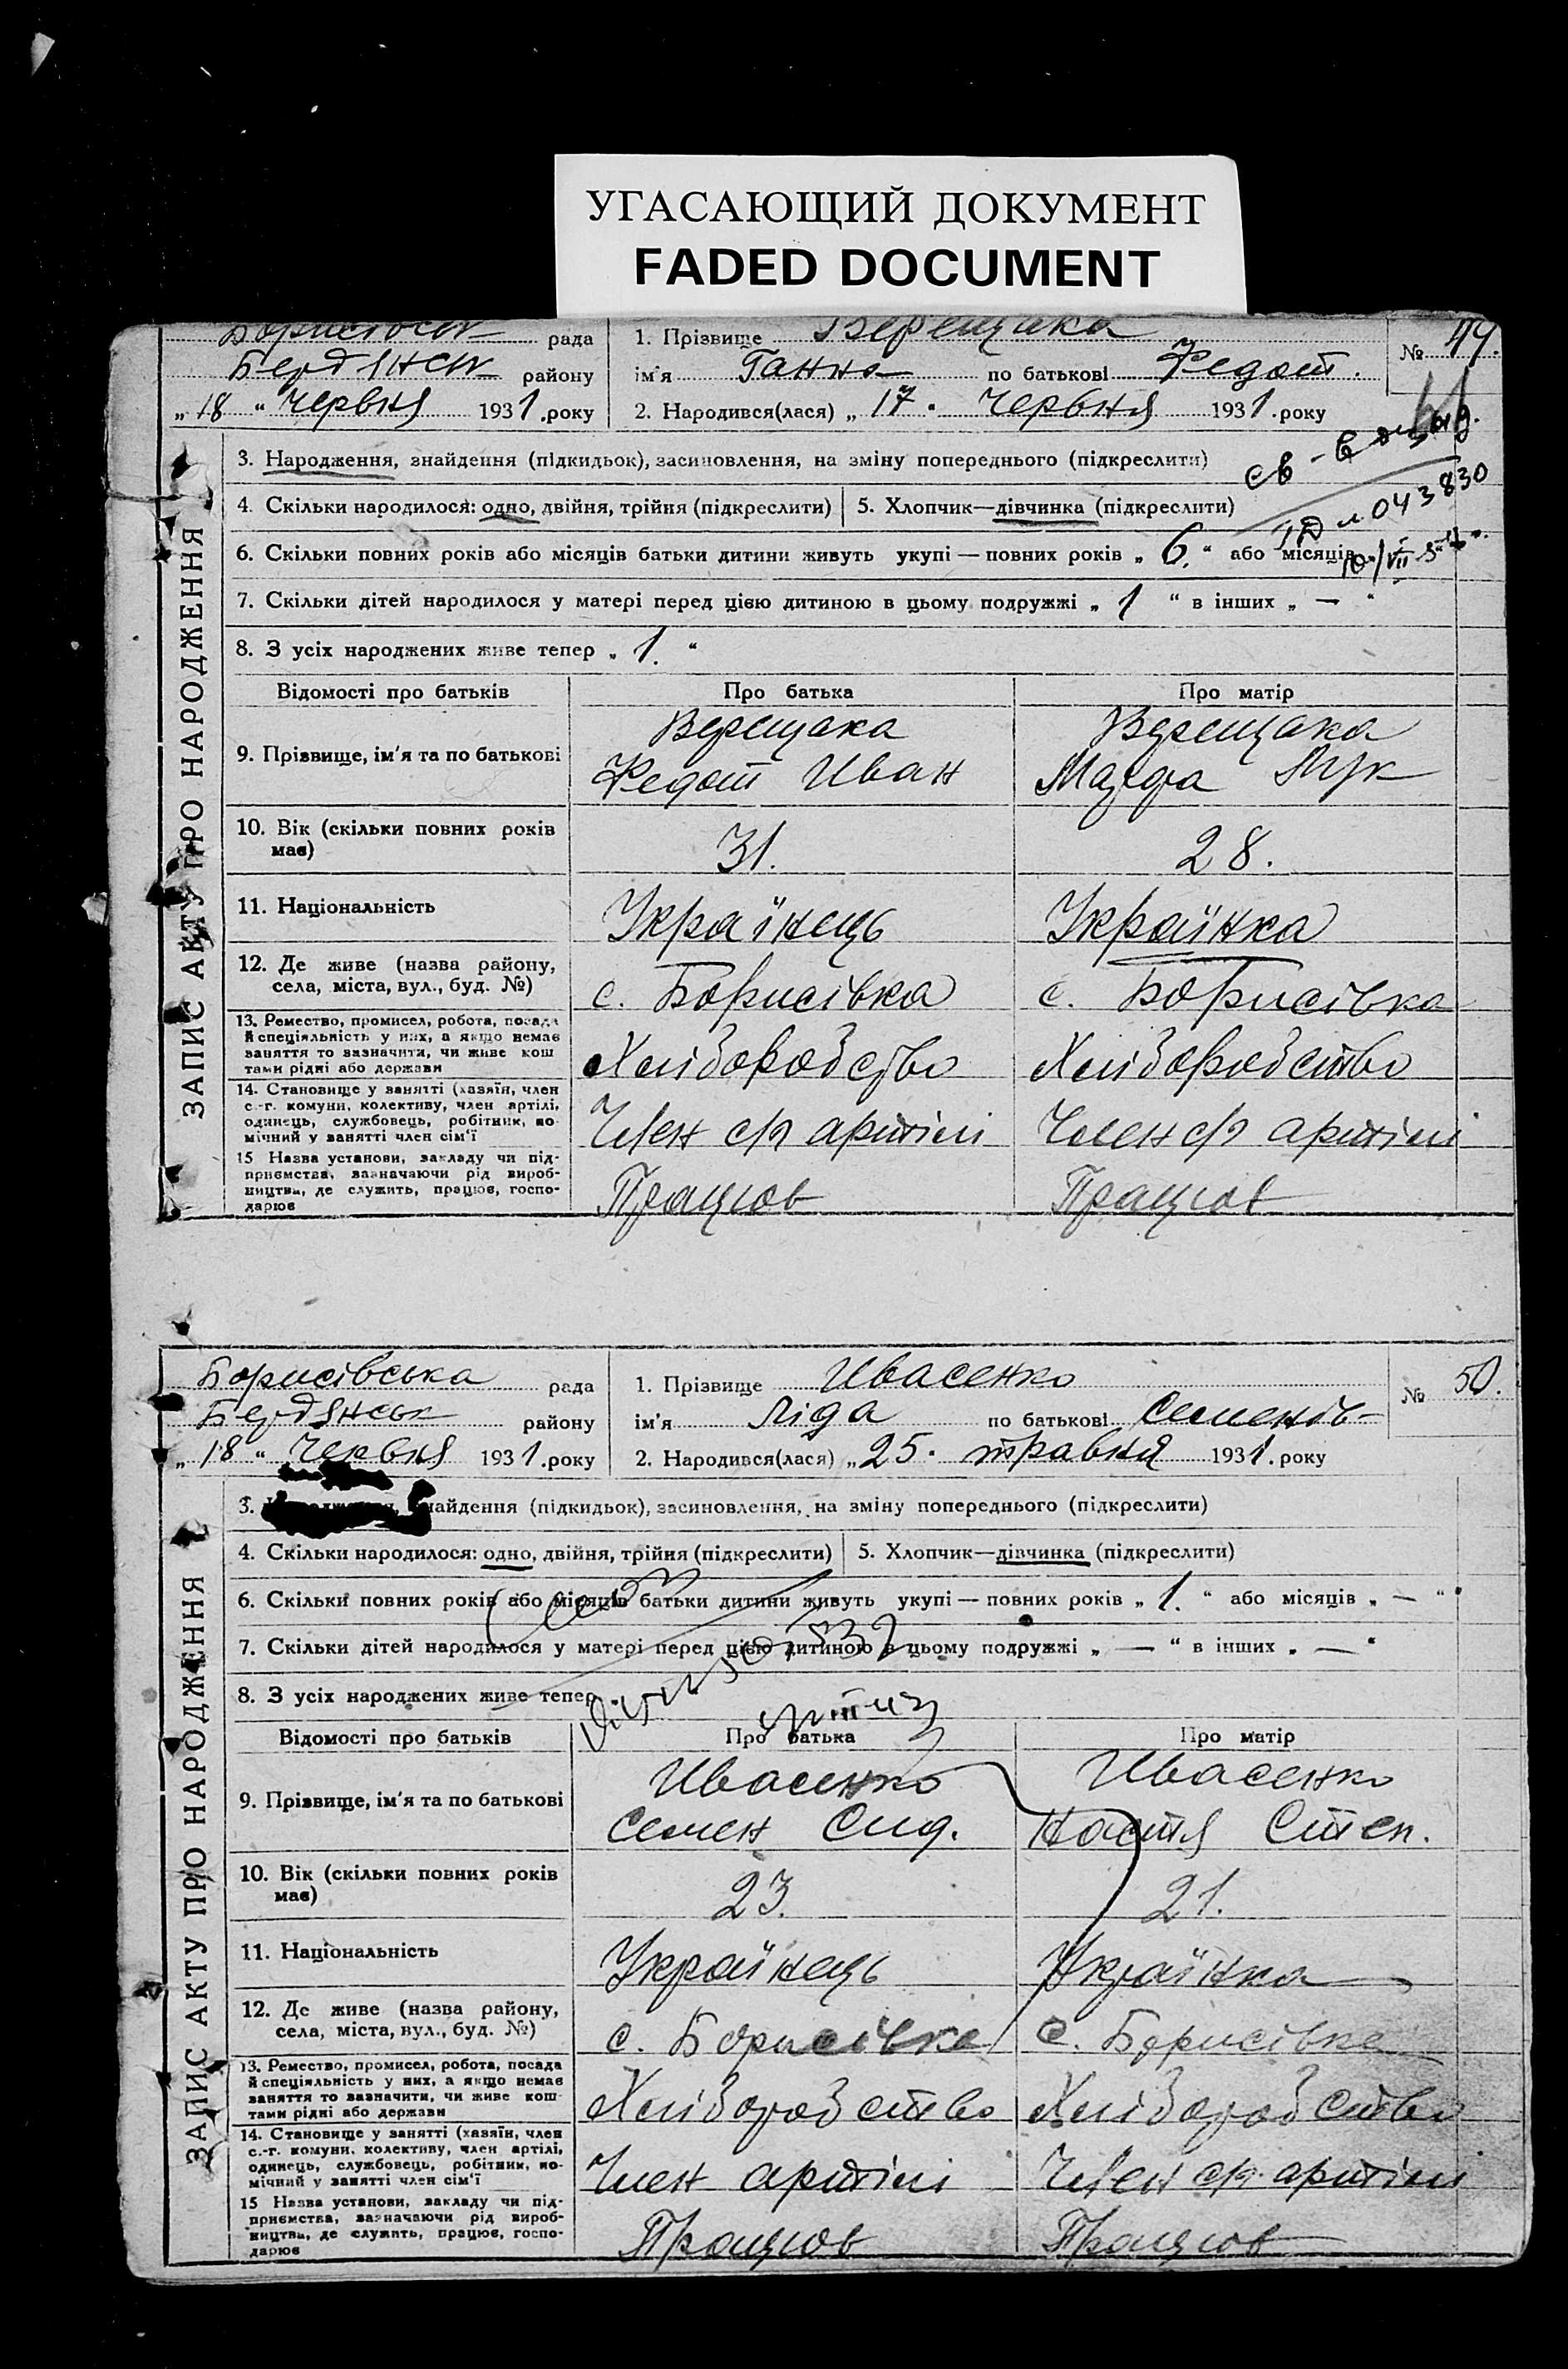 УГАСАЮЩИЙ ДОКУМЕНТ
FADED DOCUMENT
рада
1. Прізвище Верещака
№ 49.
Бердянськ району
ім'я Ганна по батькові Федот.
„18“ червня 1931.року
2. Народився(лася) „17. червня 1931.року
ЗАПИС АКТУ ПРО НАРОДЖЕННЯ
3. Народження, знайдення (підкидьок), засиновлення, на зміну попереднього (підкреслити)
4. Скільки народилося: одно, двійня, трійня (підкреслити) 5. Хлопчик—дівчинка (підкреслити)
043830
6. Скільки повних років або місяців батьки дитини живуть укупі — повних років „6.“ або місяців
7. Скільки дітей народилося у матері перед цією дитиною в цьому подружжі „1“ в інших „—“
8. З усіх народжених живе тепер „1.“
Відомості про батьків Про батька Про матір
9. Прізвище, ім'я та по батькові
Верещака Верещака
Федот Иван
10. Вік (скільки повних років має)
31. 28.
11. Національність
Українець Українка
12. Де живе (назва району,
села, міста, вул., буд. №)
с. Борисівка с. Борисівка
13. Ремество, промисел, робота, посада
й спеціяльність у них, а якщо немає
заняття то зазначити, чи живе кош
тами рідні або держави
Хліборобство Хліборобство
14. Становище у занятті (хазяїн, член
с.-г. комуни, колективу, член артілі,
одинець, службовець, робітник, по-
мічний у занятті член сім'ї
Член с/г артілі Член с/г артілі
15 Назва установи, закладу чи під-
приємства, зазначаючи рід вироб-
ництва, де служить, працює, госпо-
дарює
Працюв Працюв
Борисівська рада
1. Прізвище Ивасенко
№ 50.
Бердянськ району
ім'я Ліда по батькові Семенів-
„18“ червня 1931.року
2. Народився(лася) „25. травня 1931.року
ЗАПИС АКТУ ПРО НАРОДЖЕННЯ
3. знайдення (підкидьок), засиновлення, на зміну попереднього (підкреслити)
4. Скільки народилося: одно, двійня, трійня (підкреслити) 5. Хлопчик—дівчинка (підкреслити)
6. Скільки повних років або місяців батьки дитини живуть укупі — повних років „1.“ або місяців „—“
7. Скільки дітей народилося у матері перед цією дитиною в цьому подружжі „—“ в інших „—“
8. З усіх народжених живе тепер
Відомості про батьків Про батька Про матір
9. Прізвище, ім'я та по батькові
Ивасенко Ивасенко
Семен Сид. Настя Степ.
10. Вік (скільки повних років має)
23. 21.
11. Національність
Українець Українка
12. Де живе (назва району,
села, міста, вул., буд. №)
с. Борисівка с. Борисівка
13. Ремество, промисел, робота, посада
й спеціяльність у них, а якщо немає
заняття то зазначити, чи живе кош
тами рідні або держави
Хліборобство Хліборобство
14. Становище у занятті (хазяїн, член
с.-г. комуни, колективу, член артілі,
одинець, службовець, робітник, по-
мічний у занятті член сім'ї
Член артілі Член с/г. артілі
15 Назва установи, закладу чи під-
приємства, зазначаючи рід вироб-
ництва, де служить, працює, госпо-
дарює
Працюв Працюв